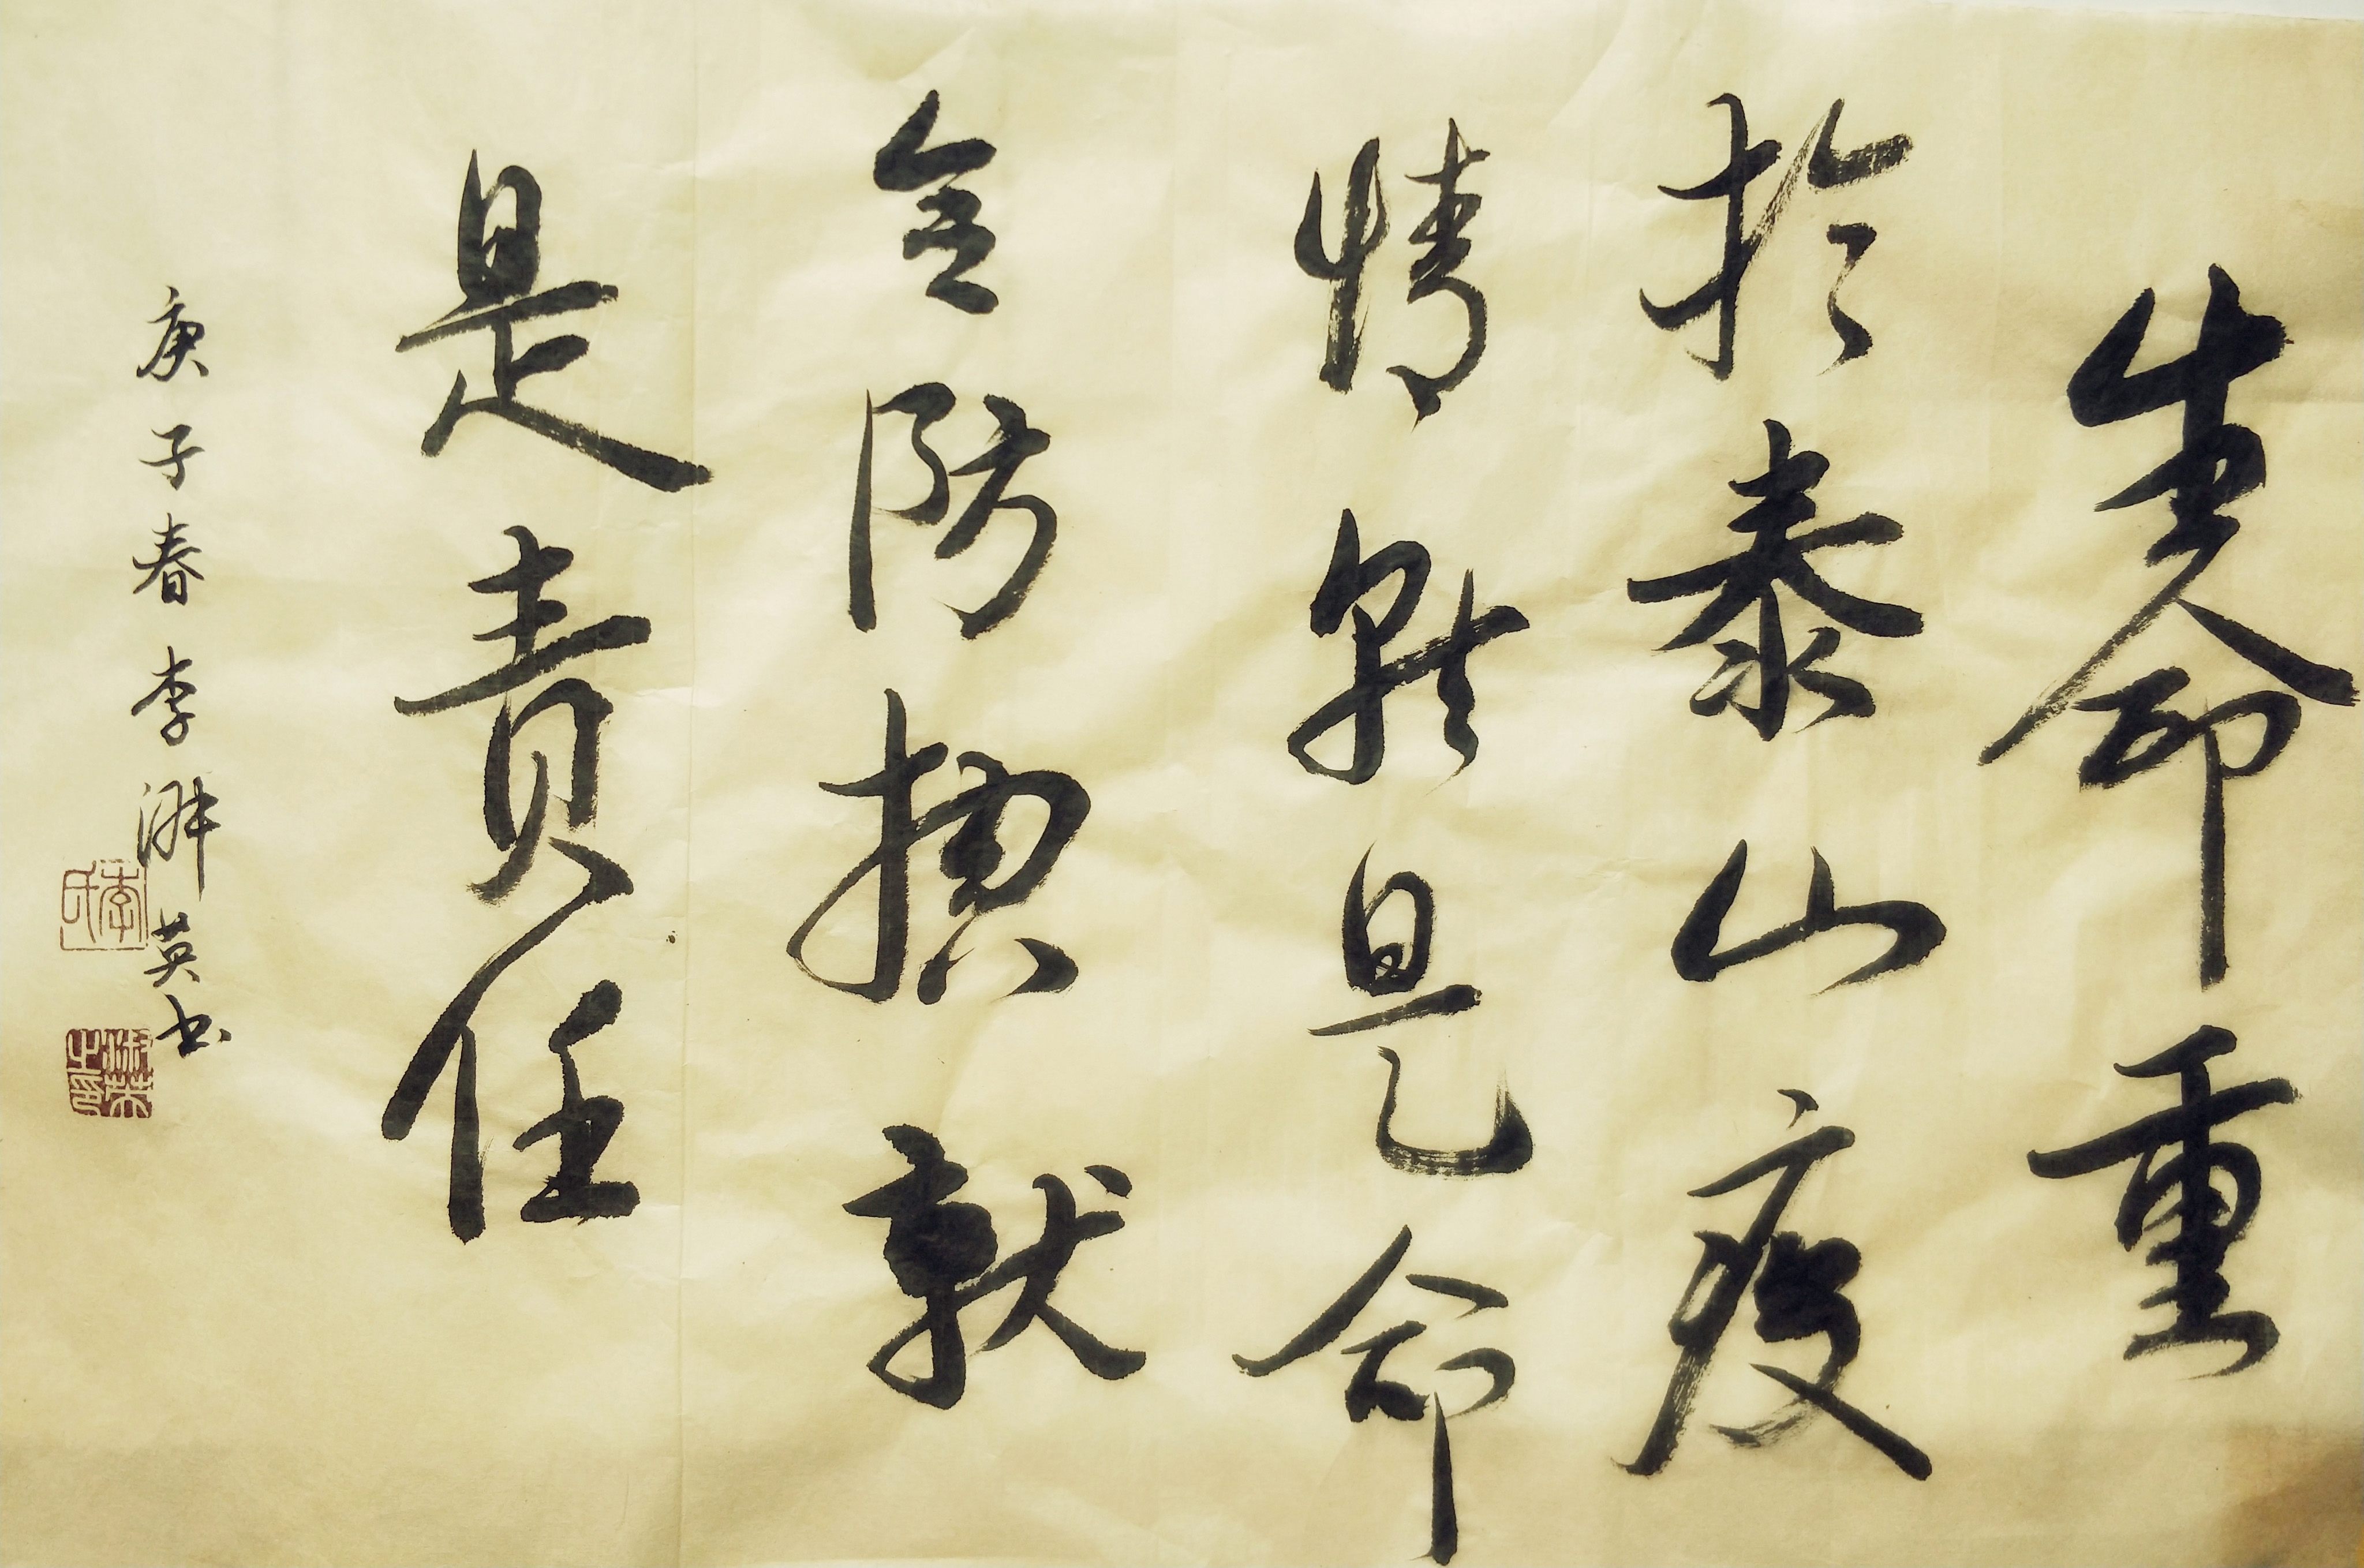 生命重
於泰山疫
情就是命
令防控就
是责任
庚子春李淑英书
李氏